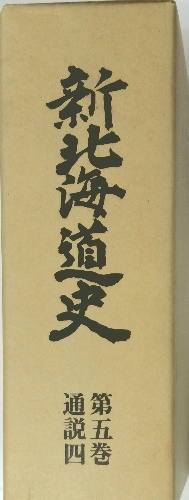 新北海道史
第五巻
通説四